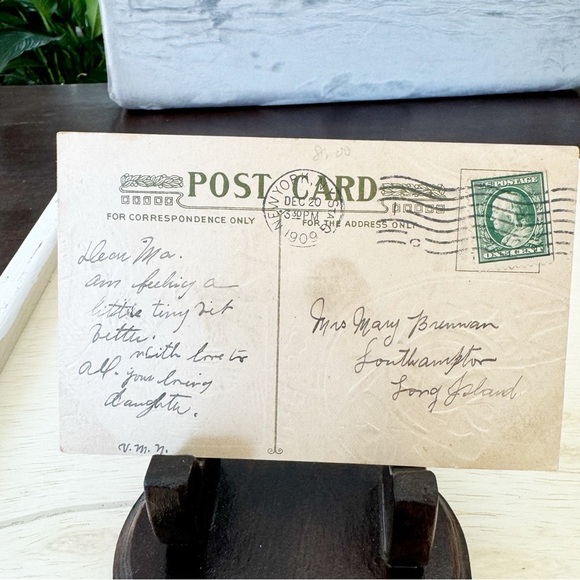 $1.00
POST CARD
FOR CORRESPONDENCE ONLY
FOR THE ADDRESS ONLY
NEW YORK, N.Y. STA.
DEC 20
3 30 PM
1909
C
U.S. POSTAGE
ONE CENT
Dear Ma.
am feeling a
little tiny bit
better.
With love to
all. your loving
daughter.
V. M. N.
Mrs Mary Brennan
Southampton
Long Island